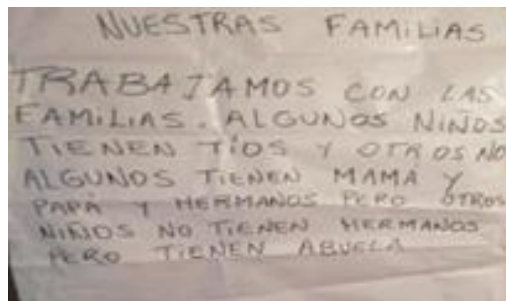 NUESTRAS FAMILIAS
TRABAJAMOS CON LAS
FAMILIAS. ALGUNOS NIÑOS
TIENEN TÍOS Y OTROS NO
ALGUNOS TIENEN MAMA Y
PAPA Y HERMANOS PERO OTROS
NIÑOS NO TIENEN HERMANOS
PERO TIENEN ABUELA